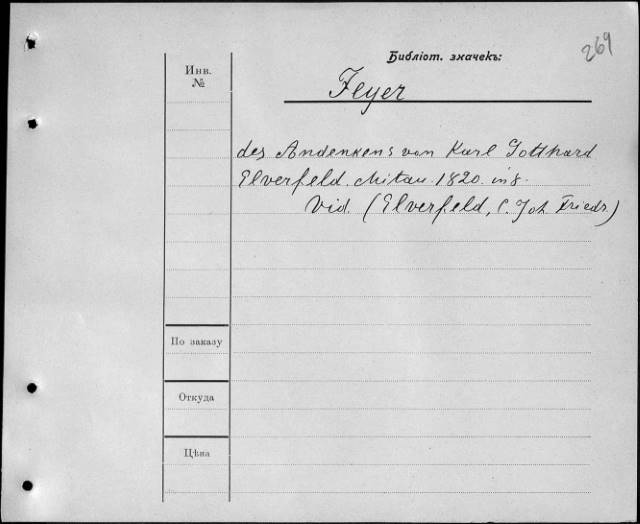 Библіот. значекъ:
269
Инв.
№
Feyer
des Andenkens von Karl Gotthard
Elverfeld. Mitau. 1820. in 8.
Vid. (Elverfeld, C. Joh. Friedr.)
По заказу
Откуда
Цѣна